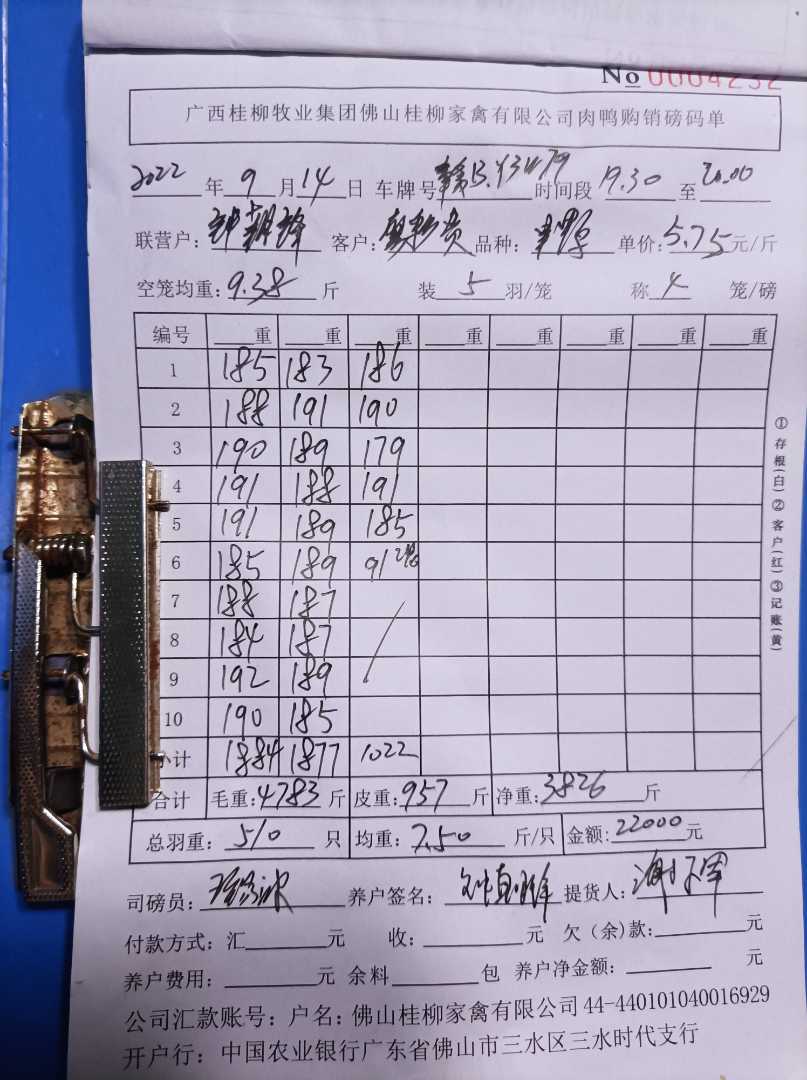 No 0004232
广西桂柳牧业集团佛山桂柳家禽有限公司肉鸭购销磅码单
2022年9月14日 车牌号 时间段19.30至20.00
联营户： 客户： 品种： 单价：5.75元/斤
空笼均重：9.38斤 装5羽/笼 称4笼/磅
编号 重 重 重 重 重 重 重 重
1 185 183 186
2 188 191 190
3 190 189 179
4 191 188 191
5 191 189 185
6 185 189 91 2笼
7 188 187
8 184 187
9 192 189
10 190 185
小计 1884 1877 1022
合计 毛重：4783斤 皮重：957斤 净重：3826斤
总羽重：510只 均重：7.50斤/只 金额：22000元
司磅员： 养户签名： 提货人：
付款方式：汇 元 收： 元 欠（余）款： 元
养户费用： 元 余料 包 养户净金额： 元
公司汇款账号：户名：佛山桂柳家禽有限公司44-440101040016929
开户行：中国农业银行广东省佛山市三水区三水时代支行
①存根(白)②客户(红)③记账(黄)